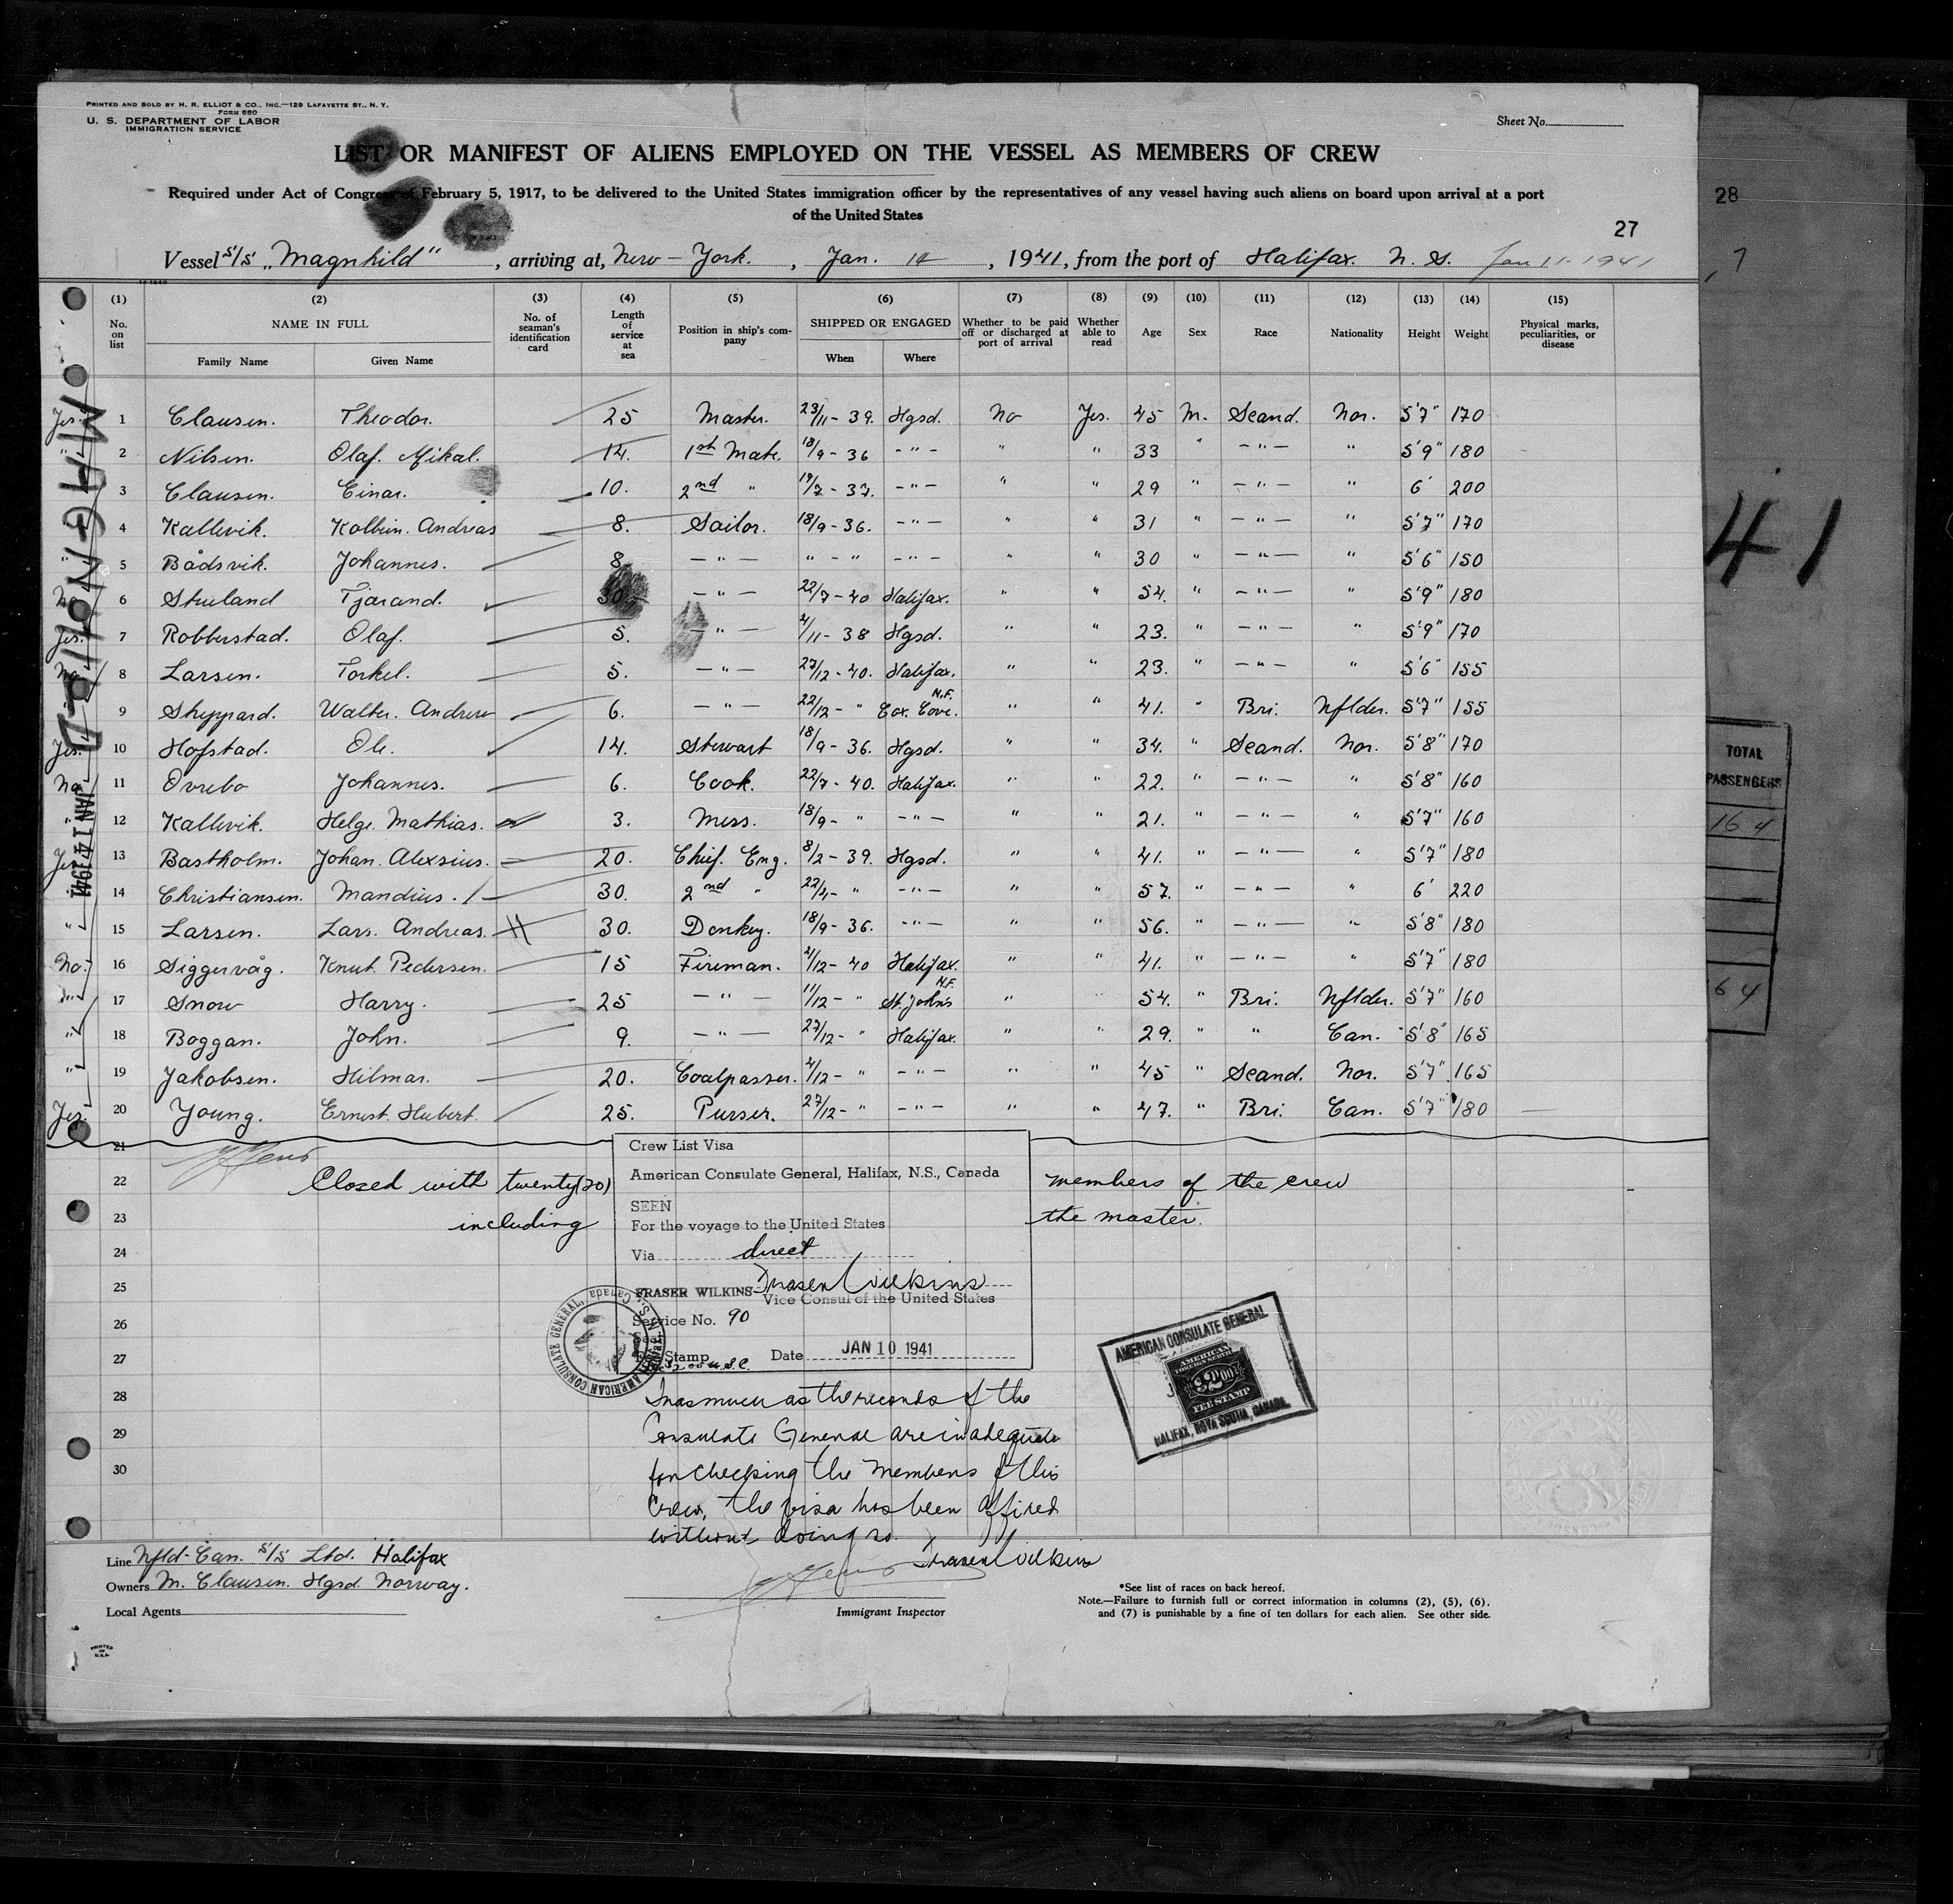 PRINTED AND SOLD BY H. R. ELLIOT & CO., INC.—129 LAFAYETTE ST., N. Y.
FORM 680
U. S. DEPARTMENT OF LABOR
IMMIGRATION SERVICE
Sheet No.
LIST OR MANIFEST OF ALIENS EMPLOYED ON THE VESSEL AS MEMBERS OF CREW
Required under Act of Congress of February 5, 1917, to be delivered to the United States immigration officer by the representatives of any vessel having such aliens on board upon arrival at a port
of the United States
28
27
Vessel S/S „Magnhild", arriving at, New-York., Jan. 14, 1941, from the port of Halifax. N. S. Jan 11-1941
(1) (2) (3) (4) (5) (6) (7) (8) (9) (10) (11) (12) (13) (14) (15)
No. on list NAME IN FULL Family Name Given Name No. of seaman's identification card Length of service at sea Position in ship's company SHIPPED OR ENGAGED When Where Whether to be paid off or discharged at port of arrival Whether able to read Age Sex Race Nationality Height Weight Physical marks, peculiarities, or disease
MAGNHILD
JAN 14 1941
Jes. 1 Clausen. Theodor. 25 Master. 23/11-39. Hgsd. No Jes. 45 M. Scand. Nor. 5'7" 170
" 2 Nilsen. Olaf. Mikal. 14. 1st Mate. 18/9-36 -"- " " 33 " -"- " 5'9" 180
3 Clausen. Einar. 10. 2nd " 19/7-37. -"- " " 29 " -"- " 6' 200
4 Kallevik. Kolbein. Andreas 8. Sailor. 18/9-36. -"- " " 31 " -"- " 5'7" 170
5 Bådsvik. Johannes. 8. -"- "-" -"- " " 30 " -"- " 5'6" 150
No 6 Stueland Tjärand. 30. -"- 22/7-40 Halifax. " " 54. " -"- " 5'9" 180
Jes. 7 Robberstad. Olaf. 5. -"- 4/11-38 Hgsd. " " 23. " -"- " 5'9" 170
No 8 Larsen. Torkel. 5. -"- 27/12-40. Halifax. " " 23. " -"- " 5'6" 155
9 Sheppard. Walter. Andrew 6. -"- 22/12-" Cox. Cove. N.F. " " 41. " Bri. Nflder. 5'7" 155
Jes. 10 Hofstad. Ole. 14. Stewart 18/9-36. Hgsd. " " 34. " Scand. Nor. 5'8" 170
No 11 Ovrebo Johannes. 6. Cook. 22/7-40. Halifax. " " 22. " -"- " 5'8" 160
" 12 Kallevik. Helge. Mathias. 3. Mess. 18/9-" -"- " " 21. " -"- " 5'7" 160
Jes 13 Bastholm. Johan. Alexsius. 20. Chief. Eng. 8/2-39. Hgsd. " " 41. " -"- " 5'7" 180
" 14 Christiansen. Mandius. 30. 2nd " 22/4-" -"- " " 57. " -"- " 6' 220
" 15 Larsen. Lars. Andreas. 30. Donkey. 18/9-36. -"- " " 56. " -"- " 5'8" 180
No. 16 Siggervåg. Knut. Pedersen. 15 Fireman. 4/12-40 Halifax. " " 41. " -"- " 5'7" 180
" 17 Snow Harry. 25 -"- 11/12-" St. John's N.F. " " 54. " Bri. Nflder. 5'7" 160
" 18 Boggan. John. 9. -"- 27/12-" Halifax. " " 29. " " Can. 5'8" 165
" 19 Jakobsen. Hilmar. 20. Coalpasser. 4/12-" -"- " " 45 " Scand. Nor. 5'7" 165
Jes. 20 Young. Ernest. Hubert. 25. Purser. 27/12-" -"- " " 47. " Bri. Can. 5'7" 180
21
22 Closed with twenty (20) members of the crew
23 including the master.
24
25
26
27
28
29
30
Crew List Visa
American Consulate General, Halifax, N.S., Canada
SEEN
For the voyage to the United States
Via direct
FRASER WILKINS Fraser Wilkins
Vice Consul of the United States
Service No. 90
Seal
Fee Stamp Date JAN 10 1941
$2.00 U.S.C.
AMERICAN CONSULATE GENERAL, HALIFAX, N.S., Canada
AMERICAN CONSULATE GENERAL
AMERICAN
FOREIGN SERVICE
$2.00
FEE STAMP
HALIFAX, NOVA SCOTIA, CANADA.
Inasmuch as the records of the
Consulate General are inadequate
for checking the members of this
crew, the visa has been affixed
without doing so.
Fraser Wilkins
Line Nfld-Can. S/S Ltd. Halifax
Owners M. Clausen. Hgsd. Norway.
Local Agents
Immigrant Inspector
*See list of races on back hereof.
Note.—Failure to furnish full or correct information in columns (2), (5), (6),
and (7) is punishable by a fine of ten dollars for each alien. See other side.
PRINTED
IN
U.S.A.
41
TOTAL
PASSENGERS
164
164